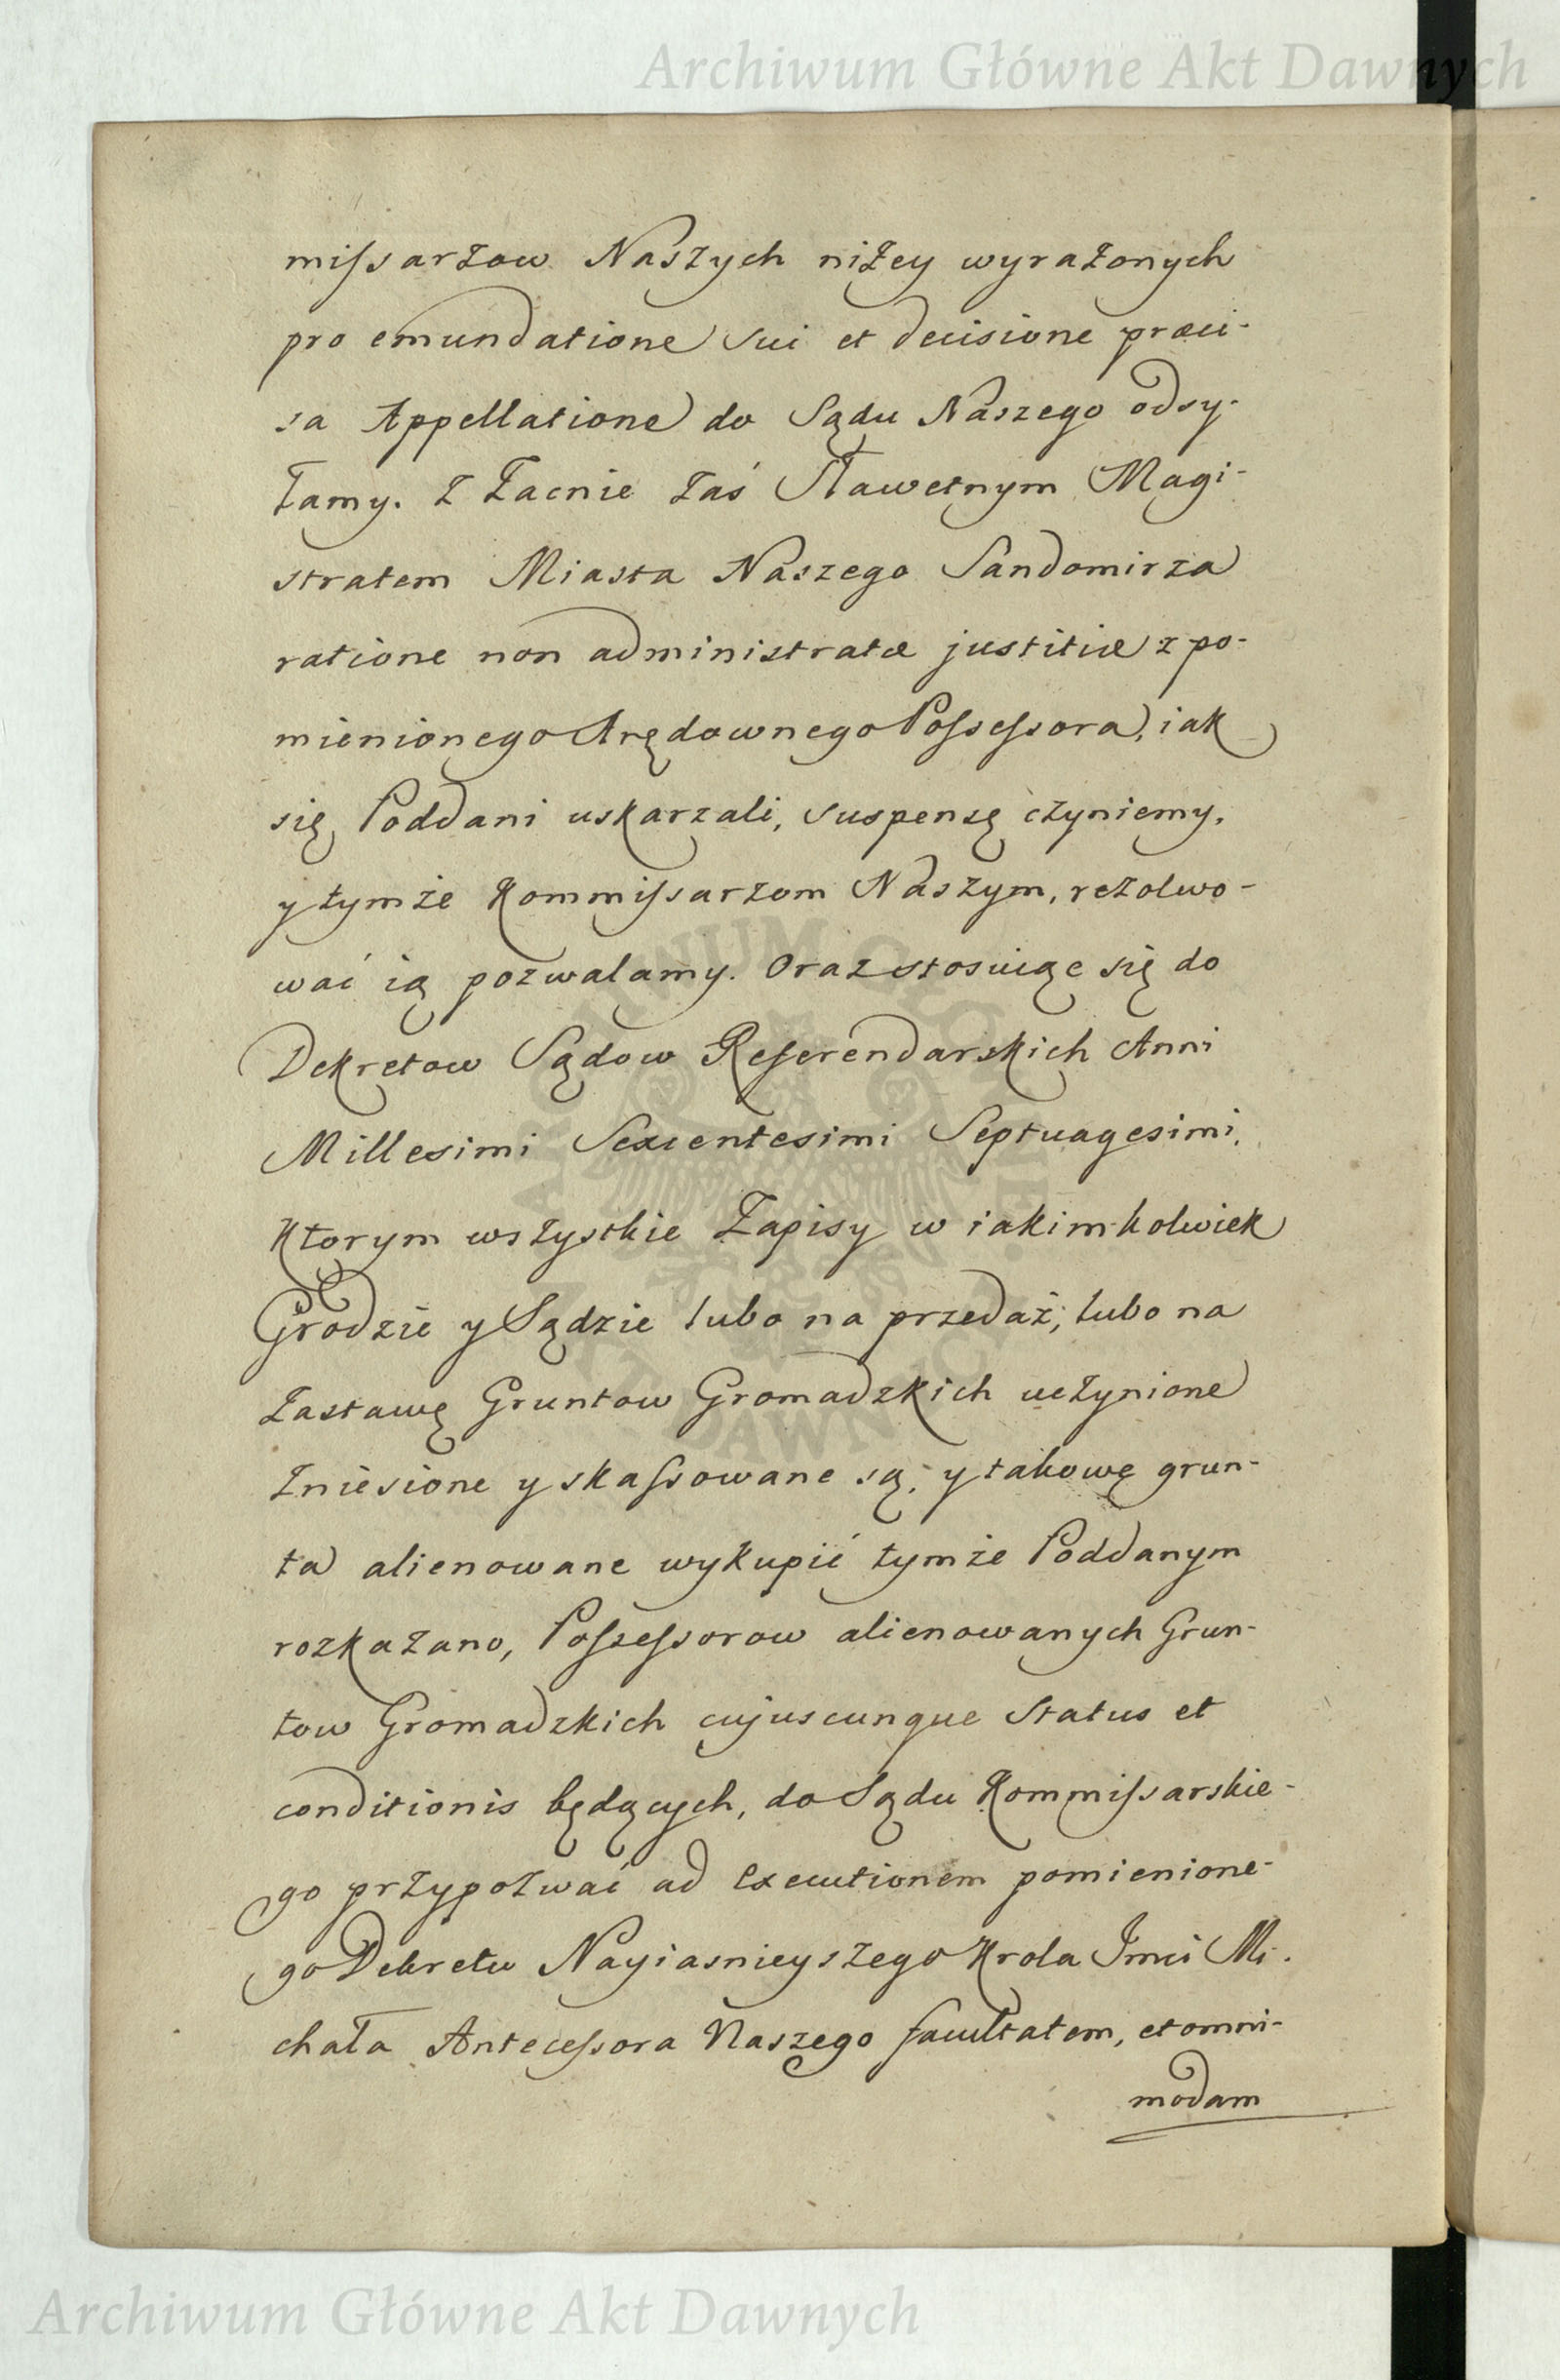 Archiwum Główne Akt Dawnych
missarzow Naszych niżey wyrażonych
pro emundatione sui et decisione præci-
sa Appellatione do Sądu Naszego odsy-
łamy. Z Zacnie zaś Sławetnym Magi-
stratem Miasta Naszego Sandomirza
ratione non administratæ justitiæ z po-
mienionego Arędownego Possessora, iak
się Poddani uskarzali, suspensę czyniemy,
y tymże Kommissarzom Naszym, rezolwo-
wać ią pozwalamy. Oraz stosuiąc się do
Dekretow Sądow Referendarskich Anni
Millesimi Sexcentesimi Septuagesimi,
Ktorym wszystkie Zapisy w iakimkolwiek
Grodzie y Sądzie lubo na przedaż, lubo na
zastawę Gruntow Gromadzkich uczynione
zniesione y skassowane są, y takowę grun-
ta alienowane wykupić tymże Poddanym
rozkazano, Possessorow alienowanych Grun-
tow Gromadzkich cujuscunque Status et
conditionis będących, do Sądu Kommissarskie-
go przypozwać ad Executionem pomienione-
go Dekretu Nayiasnieyszego Krola Jmci Mi-
chała Antecessora Naszego facultatem, et omni-
modam
Archiwum Główne Akt Dawnych